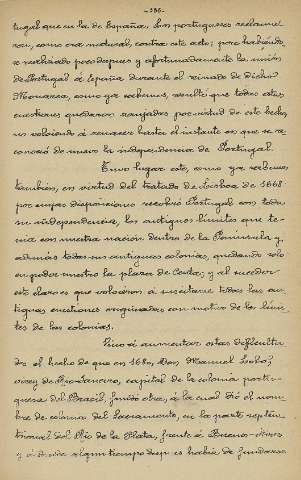 -186-
tugal que en la de España. Los portugueses reclama-
ron, como era natural, contra este acto; pero habiéndo-
se realizado poco despues y afortunadamente la unión
de Portugal á España durante el reinado de dicho
Monarca, como ya sabemos, resultó que todas estas
cuestiones quedaron zanjadas por virtud de este hecho,
no volviendo á renacer hasta el instante en que se re-
conoció de nuevo la independencia de Portugal.
Tuvo lugar esto, como ya sabemos
tambien, en virtud del tratado de Lisboa de 1668
por cuyas disposiciones recobró Portugal con toda
su independencia, los antiguos límites que te-
nia con nuestra nación dentro de la Península y
además todas sus antiguas colonias, quedando solo
en poder nuestro la plaza de Ceuta; y al suceder
esto claro es que volvieron á suscitarse todas las an-
tiguas cuestiones originadas con motivo de los lími-
tes de las colonias.
Vino á aumentar estas dificulta-
des el hecho de que en 1680, Don Manuel Lobo,
virrey de Rio-Janeiro, capital de la colonia portu-
guesa del Brasil, fundó otra, á la cual dió el nom-
bre de colonia del Sacramento, en la parte septen-
trional del Río de la Plata, frente á Buenos-Aires
y á donde algun tiempo despues había de fundarse